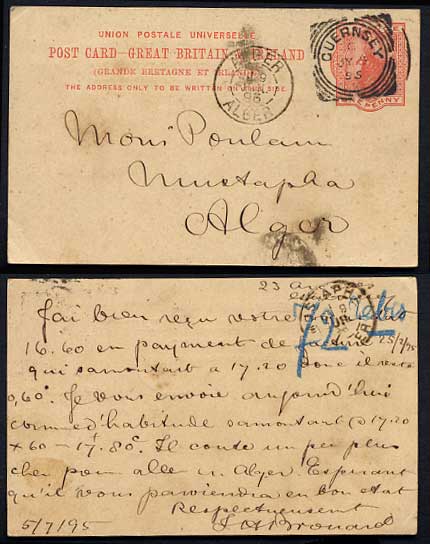 UNION POSTALE UNIVERSELLE
POST CARD-GREAT BRITAIN & IRELAND
(GRANDE BRETAGNE ET IRLANDE)
THE ADDRESS ONLY TO BE WRITTEN ON THIS SIDE.
GUERNSEY
JY
95
PENNY
ALGER
ALGER
Monsr Poulain
Mustapha
Alger
23
MUSTAPHA
J'ai bien reçu votre
16.60 en payment de facture
qui samontait à 17.20 donc il reste
0,60c. Je vous envoie aujourd'hui
comme d'habitude samontant à 17.20
+ 60 = 17f 80c. Il coute un peu plus
cher pour aller en Alger. Esperant
qu'il vous parviendra en bon etat
Respectueusement
5/7/95
Brouard
72
25/7/95